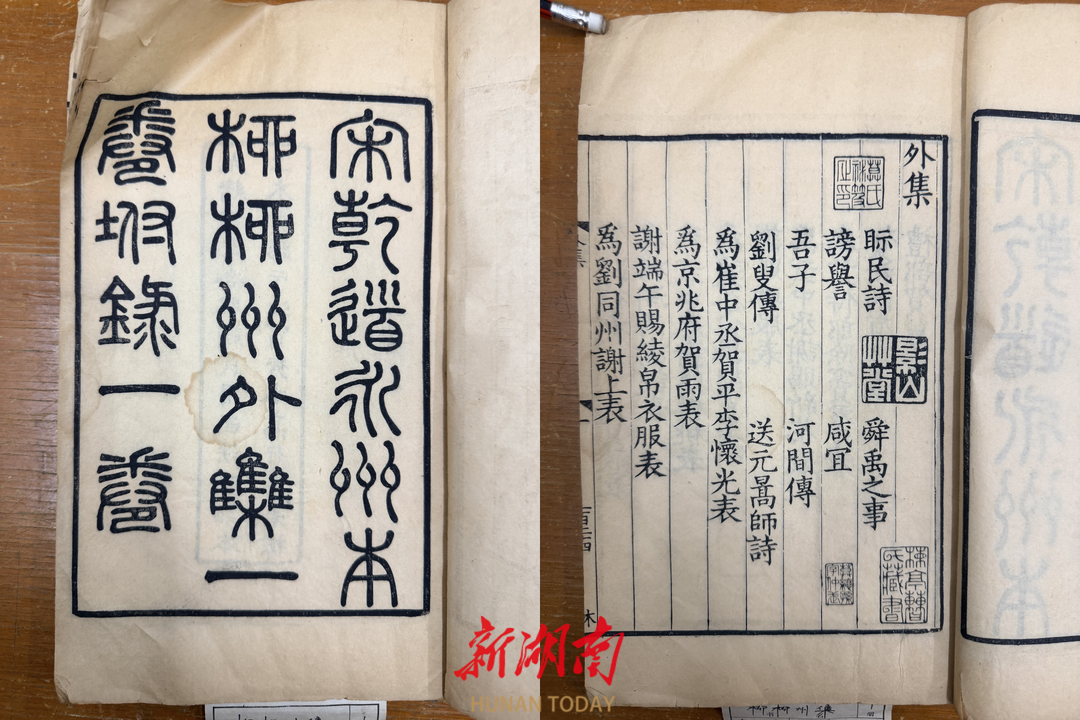 宋乾道永州本
柳柳州外集一
卷坿錄一卷
外集
眎民詩 舜禹之事
謗譽 咸宜
吾子 河間傳
劉叟傳 送元暠師詩
爲崔中丞賀平李懷光表
爲京兆府賀雨表
謝端午賜綾帛衣服表
爲劉同州謝上表
影山艸堂
楝亭曹氏藏書
新湖南
HUNAN TODAY